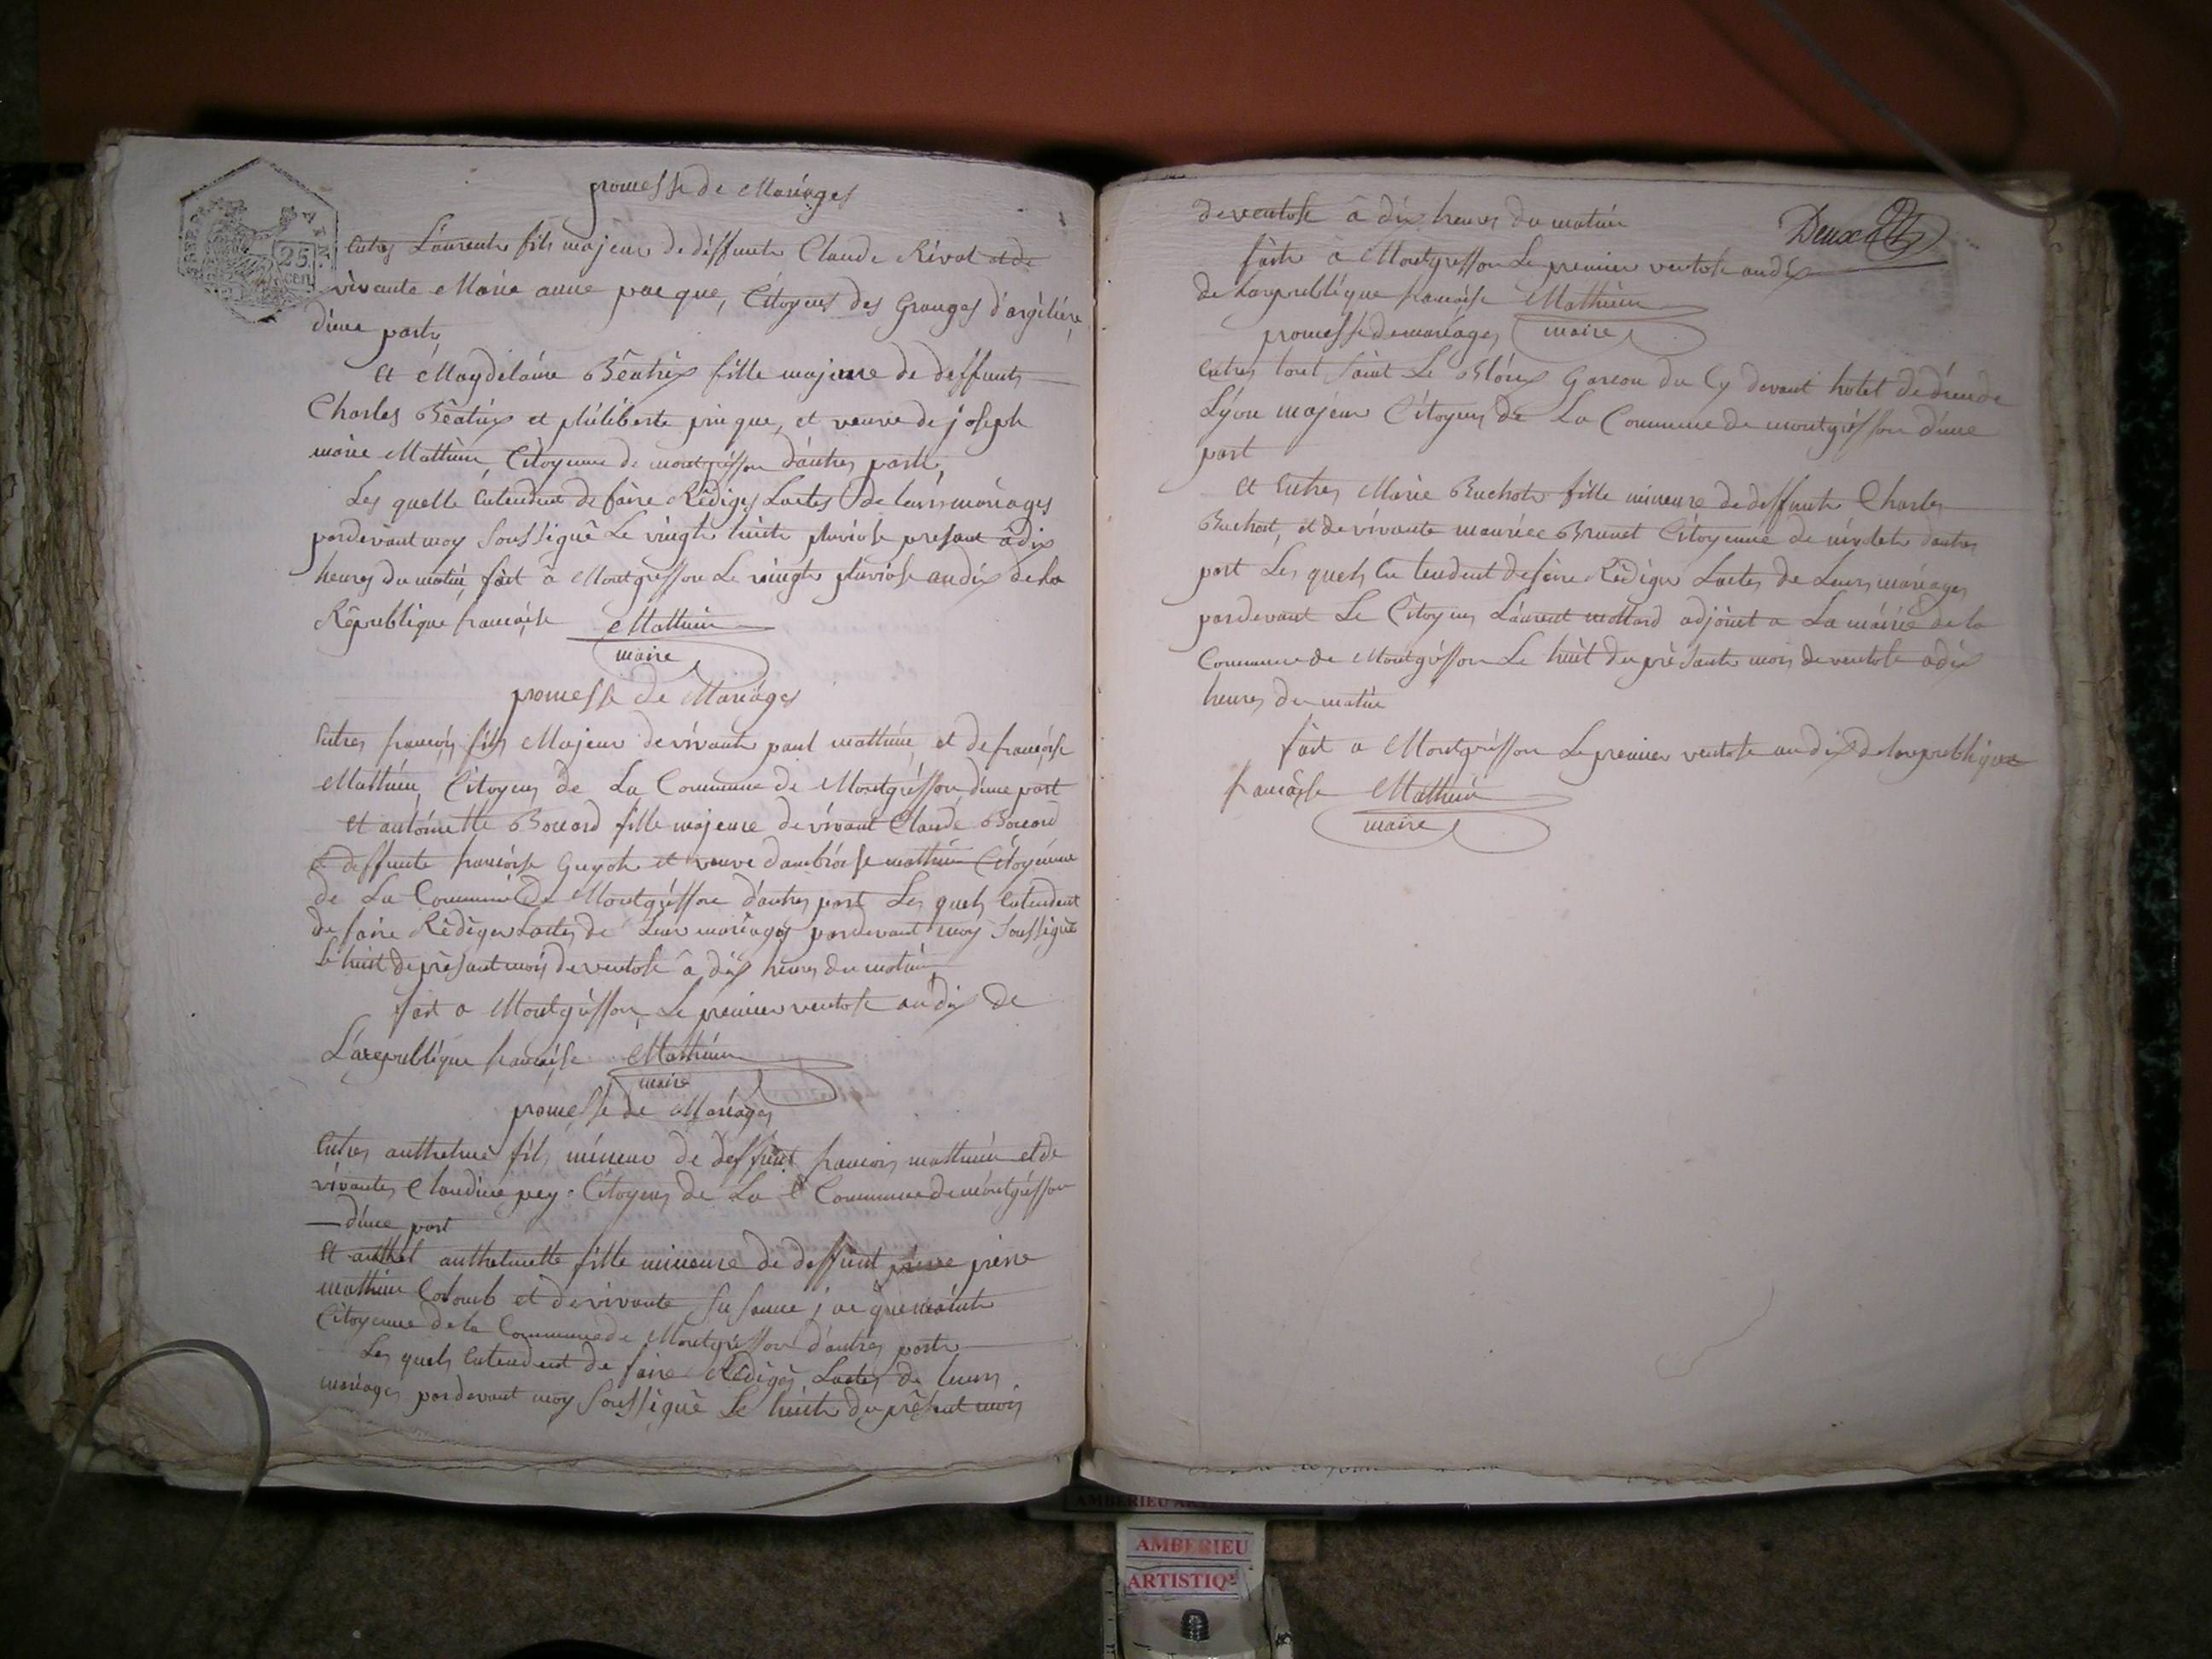 promesse de Mariages
25
cen
Entres Laurents fils majeur de déffunts Claude Rivat et de
vivante Marie anne pacque, Citoyens des Granges d'argiliére,
d'une parts,
et Magdelaine Béatrix fille majeure de deffunts
Charles Béatrix et philiberte prique, et veuve de joseph
marie Mathieu, Citoyenne de montgrisson d'autres parts,
Les quelle Entendent de faire Rêdiges Lactes de leurs mariages
pardevant moy Soussigné Le vingts huits pluviose presant à dix
heures du matin, fait à Montgrisson Le vingts pluviose an dix de la
République francaise Mathieu
maire
promesse de Mariages
Entres francois fils Majeur de vivants paul mathieu, et de francoise
Mathieu, Citoyens de La Commune de Montgrisson, d'une part
et antoinette Bouard fille majeure de vivant Claude Bouard
& deffunte francoise Guyot et veuve d'ambroise mathieu Citoyenne
de La Commune De Montgrisson d'autres part Les quels Entendent
de faire Rêdiger Lactes de Leur mariages pardevant moy Soussigné
le huit de présant mois de ventose à dix heures du matin
fait a Montgrisson, Le premier ventose an dix de
La republique francaise Mathieu
maire
promesse de Mariages
Entres anthelme fils mineur de deffunt francois mathieu et de
vivantes Claudine pey Citoyens de La Commune de montgrisson
d'une part
Et anthel anthelmette fille mineure de deffunt piere piere
mathieu Colomb et de vivante Susanne
Citoyenne de la Commune de Montgrisson d'autres parts
Les quels Entendent de faire Rédiges Lactes de leurs
mariages pardevant moy Soussigné Le huits du présent mois
de ventose à dix heures du matin
Deux
faits a Montgresson Le premier ventose an dix
de La republique francaise Mathieu
promesse de mariages maire
Entres tout Saint Le Garcon du Cy devant hotel
Lyon majeur Citoyens de La Commune de montgrisson d'une
part
et Entres Marie Buchots fille mineure de deffunts Charles
Buchots, et de vivante mauriee Brunet Citoyenne de d'autres
part Les quels En tendent de faire Rédiger Lactes de Leurs mariages
pardevant Le Citoyens Laurent mottard adjoint a La mairie de la
Commune de Montgrisson Le huit du présants mois de ventose a dix
heures du matin
fait a Montgrisson Le premier ventose an dix de la republique
francaise Mathieu
maire
AMBERIEU
AMBERIEU
ARTISTIQ